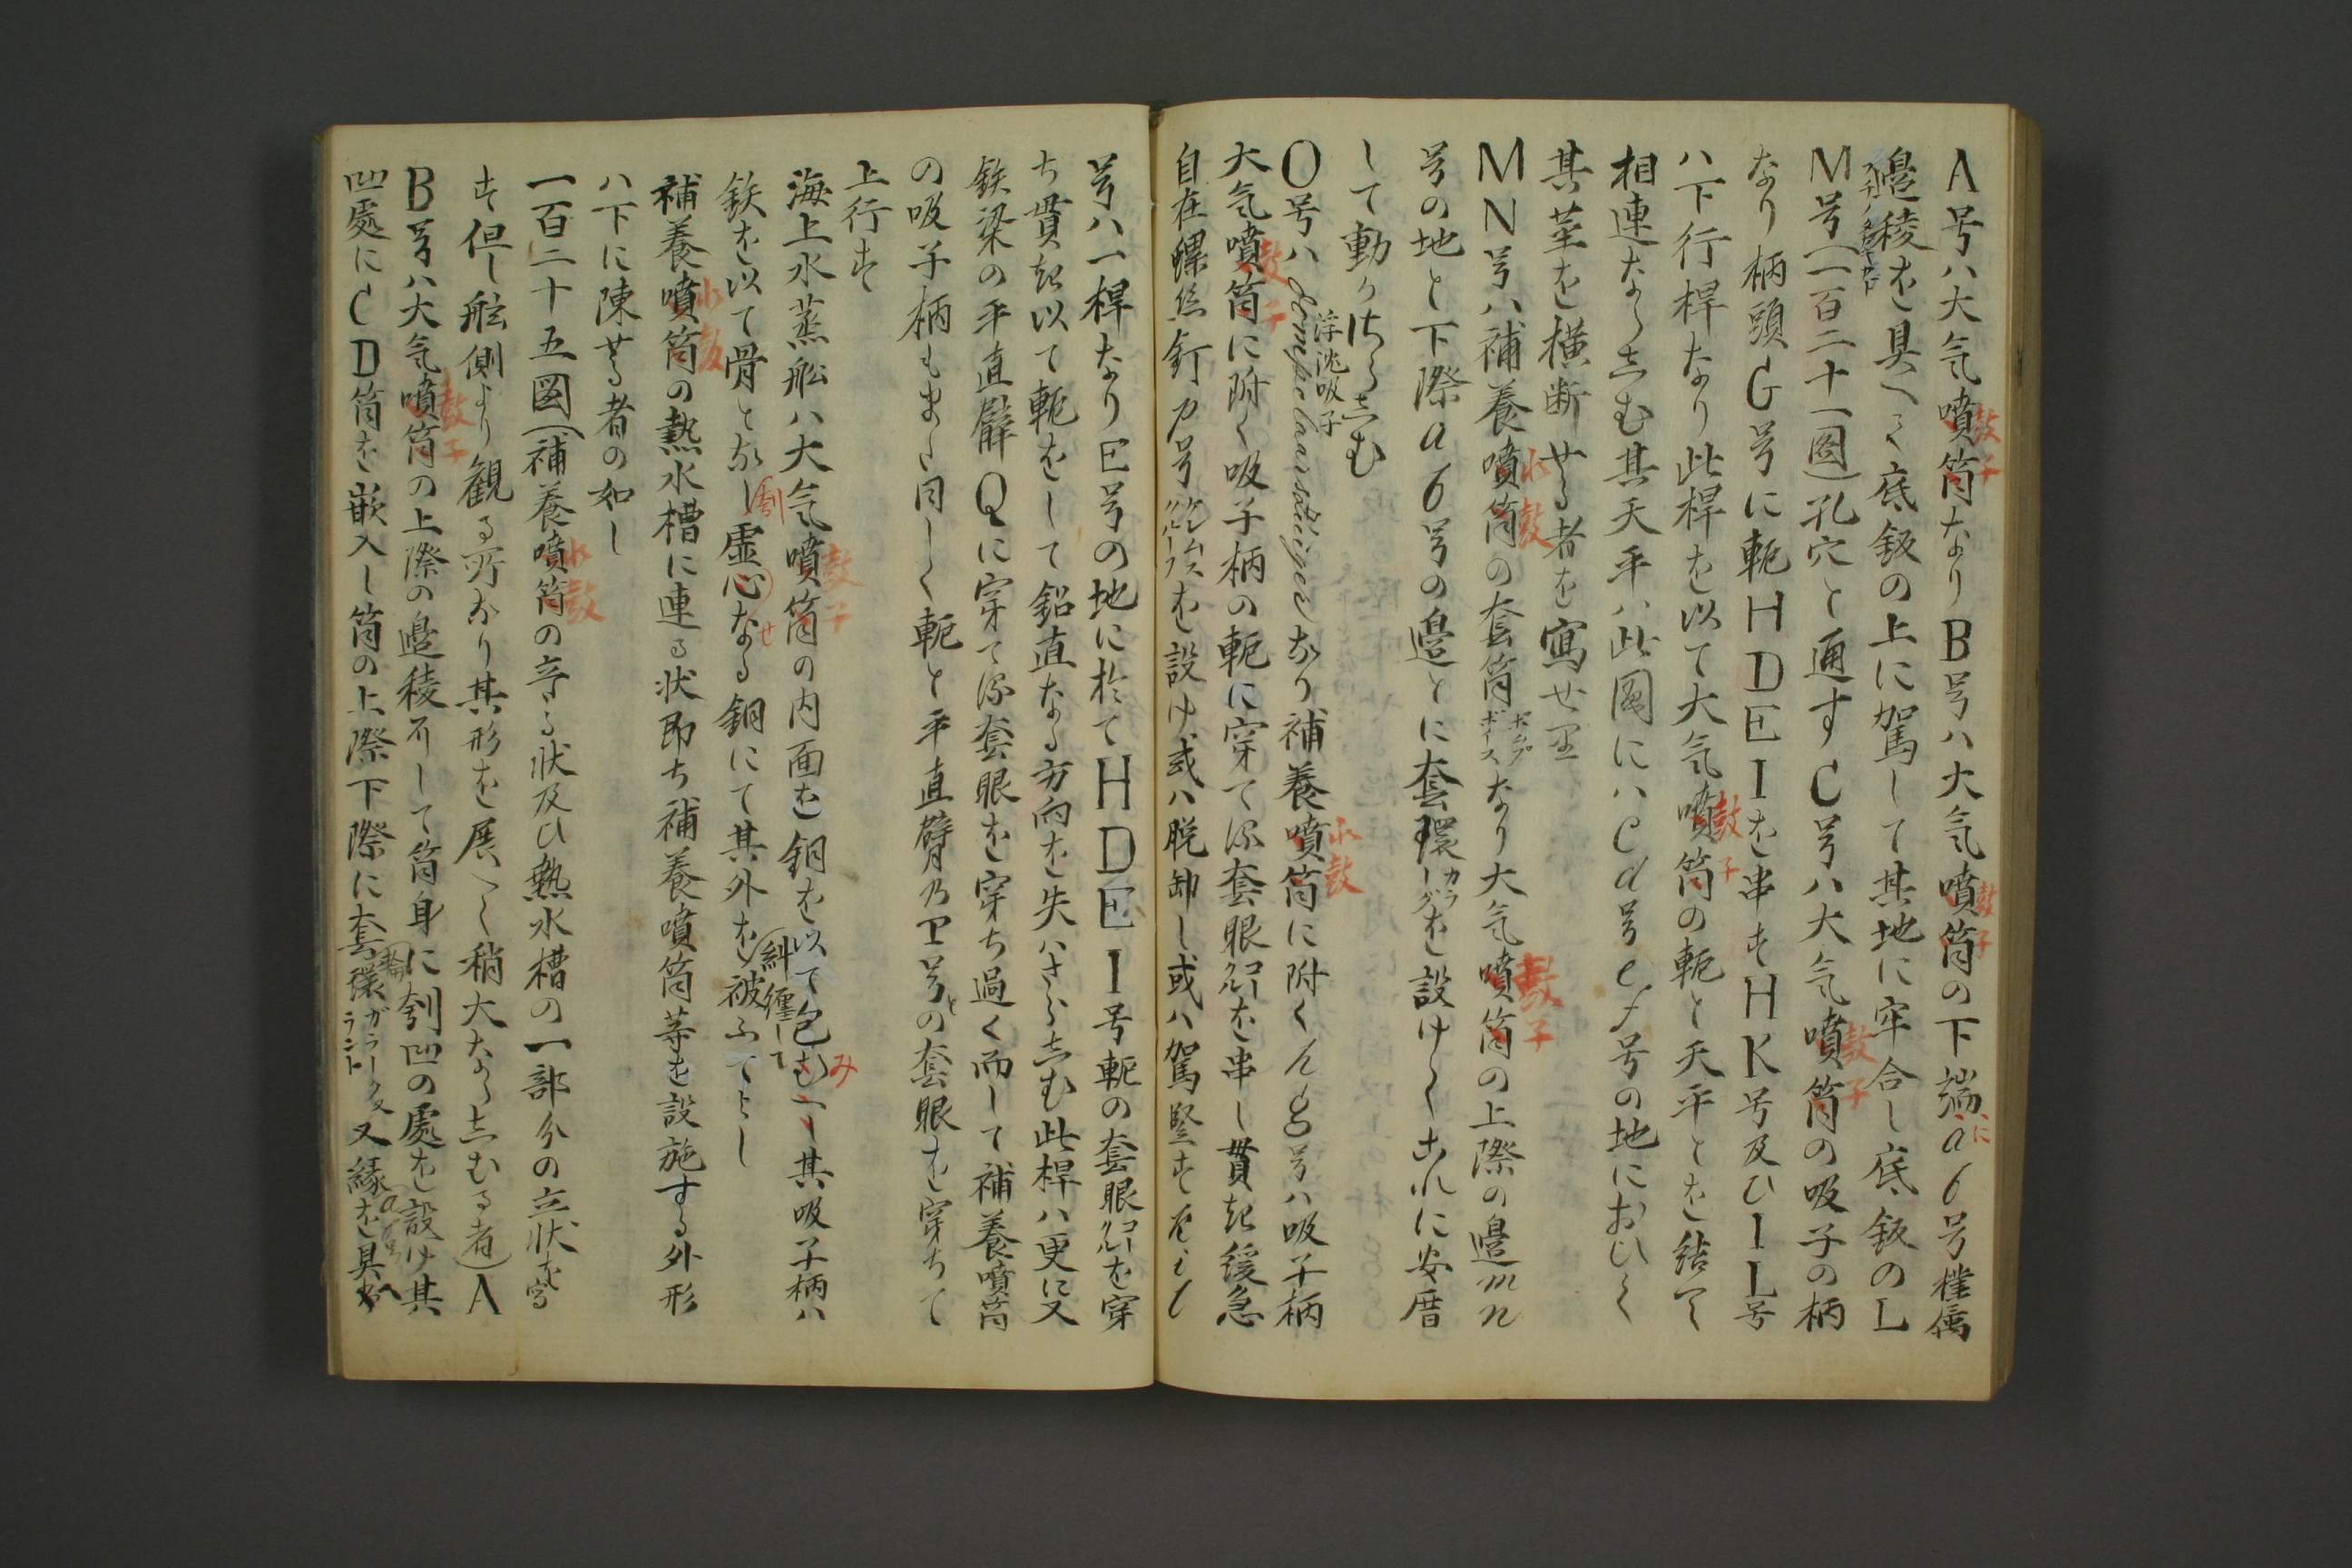 A号ハ大気噴筒なりB号ハ大気噴筒の下端にab号樸属
邉稜を具へて底鈑の上に駕して其地に牢合し底鈑のL
M号(一百二十一圖)孔穴と通すC号ハ大気噴筒の吸子の柄
なり柄頭G号に軛HDEIを串すHK号及ひIL号
ハ下行桿なり此桿を以て大気噴筒の軛と天平とを結て
相連ならしむ其天平ハ此圖にハcd号ef号の地におひて
其茎を横断せる者を寫せり
MN号ハ補養噴筒の套筒ポムプボイスなり大気噴筒の上際の邉mn
号の地と下際ab号の邉とに套環を設けてこれに安厝
して動かさらしむ
O号ハ 浮沈吸子なり補養噴筒に附くhg号ハ吸子柄
大気噴筒に附く吸子柄の軛に穿てる套眼を串し貫き緩急
自在螺絲釘P号を設け或ハ脱卸し或ハ駕竪す
号ハ一桿なりE号の地に於てHDEI号軛の套眼を穿
ち貫き以て軛をして鉛直なる方向を失ハさらしむ此桿ハ更に又
鉄梁の平直臂Qに穿てる套眼を穿ち過く而して補養噴筒
の吸子柄もまた同しく軛と平直臂乃P号との套眼を穿ちて
上行す
海上水蒸舩ハ大気噴筒の内面を銅を以て包む其吸子柄ハ
鉄を以て骨となし虚心なる銅にて其外を被ふてよし
補養噴筒の熱水槽に連る状即ち補養噴筒等を設施する外形
ハ下に陳せる者の如し
一百二十五圖(補養噴筒の立る状及ひ熱水槽の一部分の立状を寫
す但し舷側より観る所なり其形を展へて稍大ならしむる者)A
B号ハ大気噴筒の上際の邉稜にして筒身に刳凹の處を設け其
凹處にCD筒を嵌入し筒の上際下際に套環又縁を具